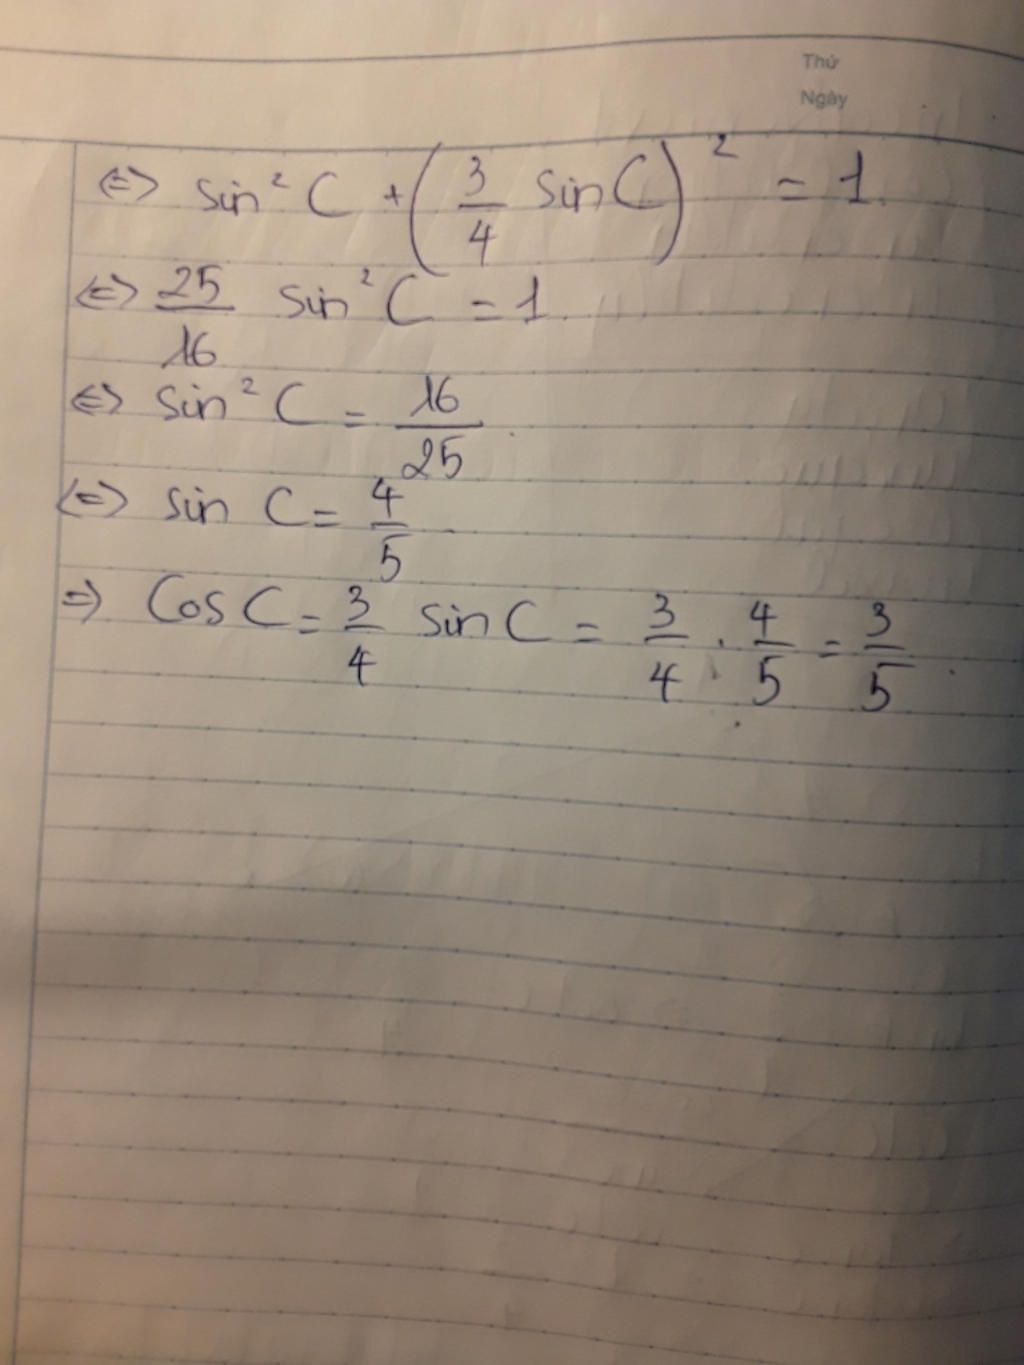 Thứ
Ngày
⇔ sin² C + (3/4 sin C)² = 1.
⇔ 25/16 sin² C = 1.
⇔ sin² C = 16/25.
⇔ sin C = 4/5.
⇒ Cos C = 3/4 sin C = 3/4 . 4/5 = 3/5.